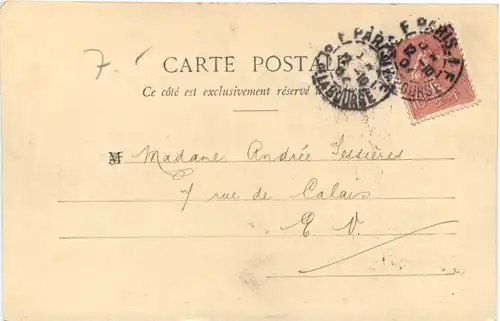 7.-
CARTE POSTALE
Ce côté est exclusivement réservé
M Madame Andrée Tessières
7 rue de Calais
E. V.
PARIS
BOURSE
10